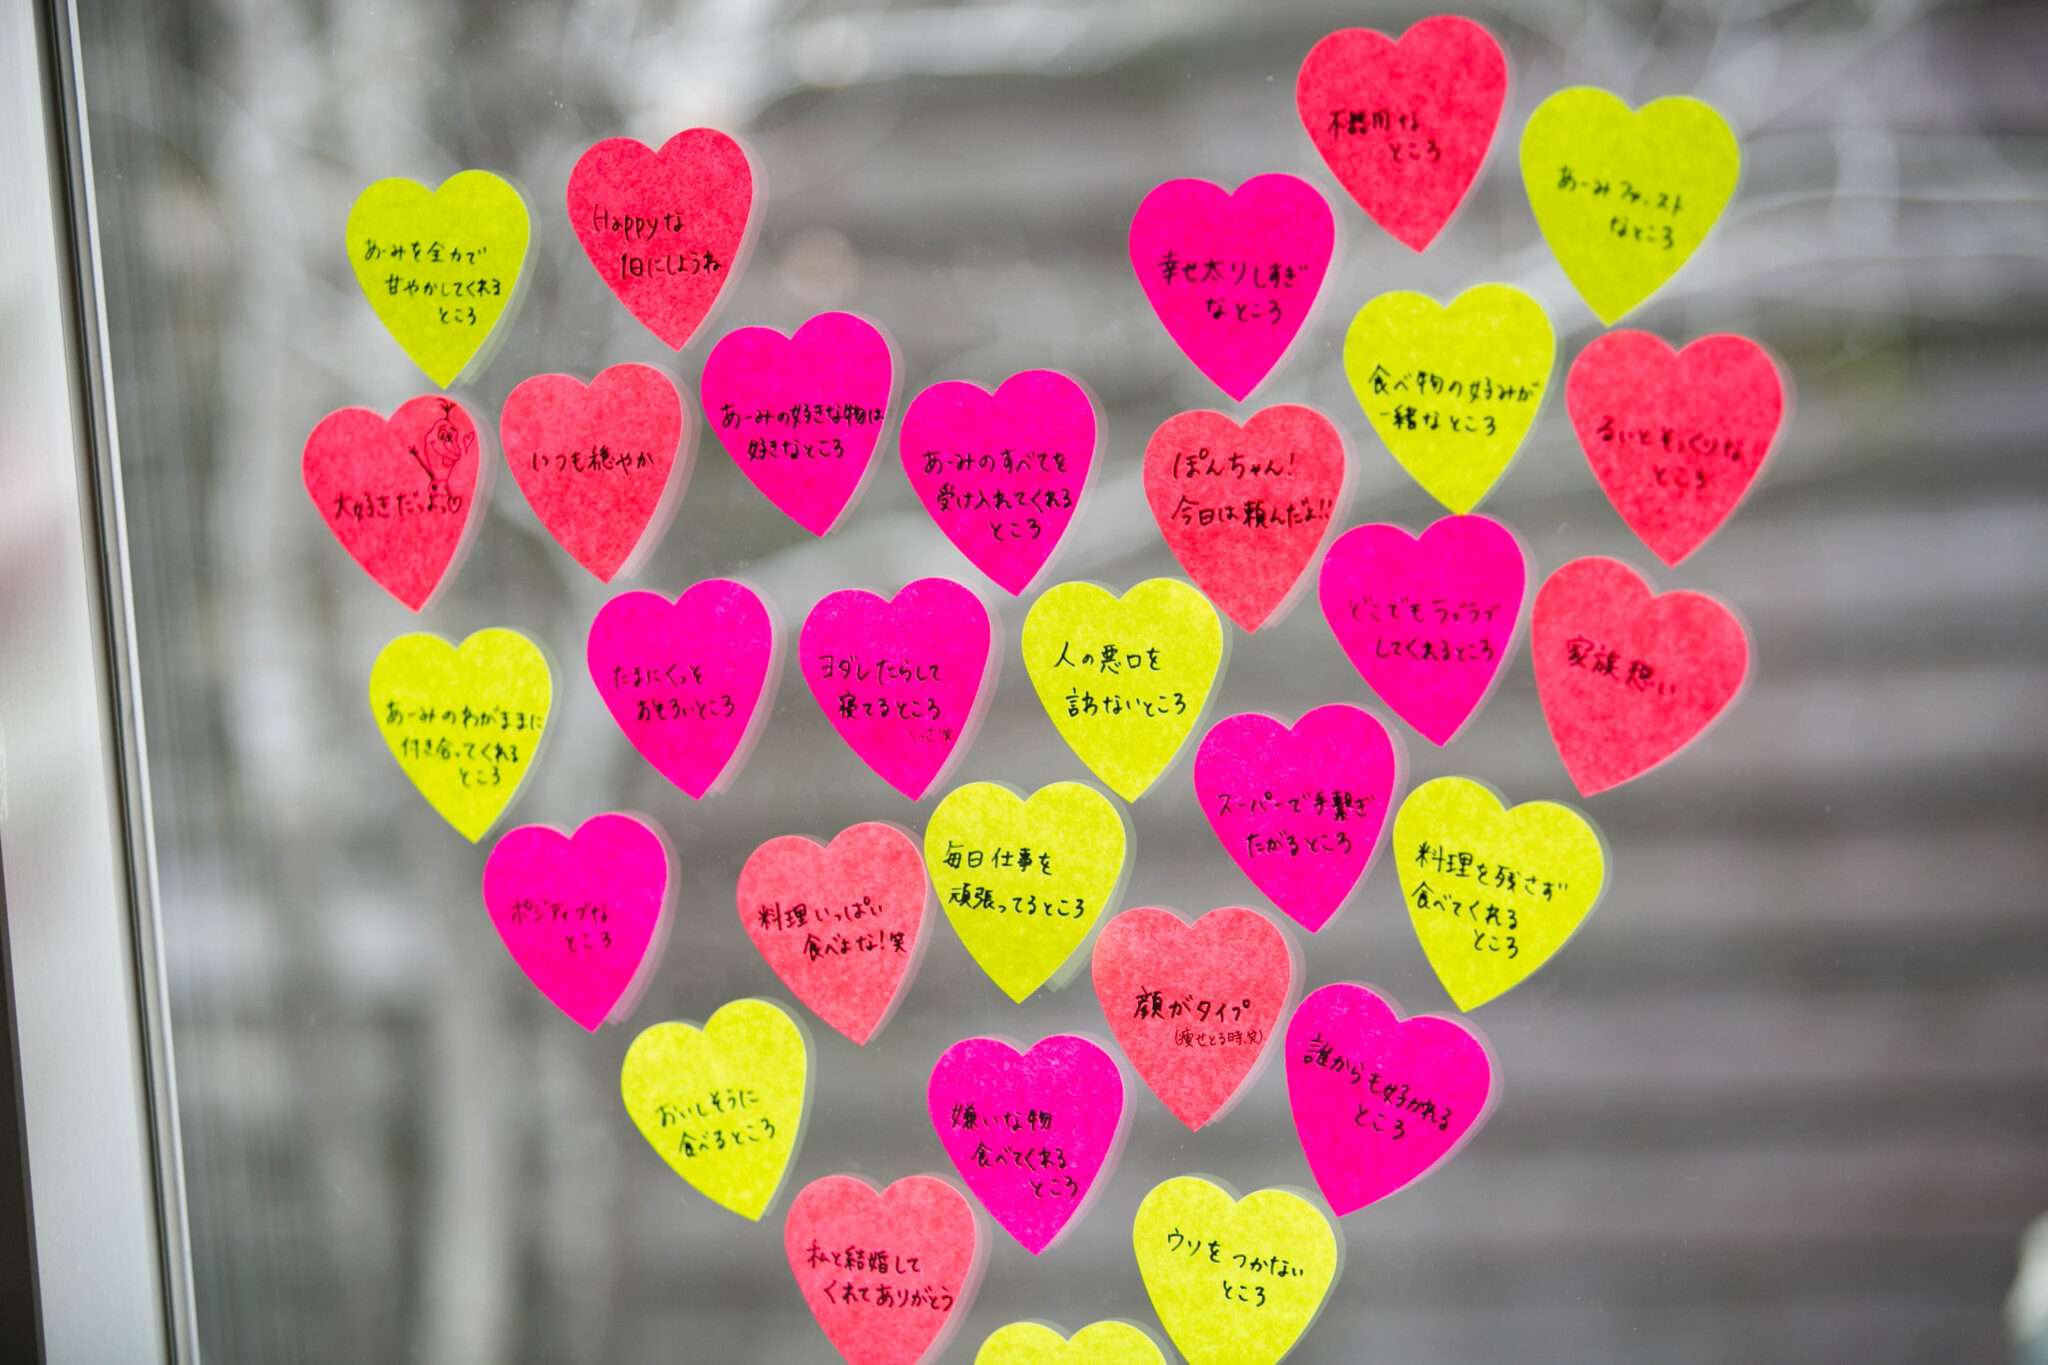 不器用な
ところ
あーみファースト
なところ
あーみを全力で
甘やかしてくれる
ところ
Happyな
1日にしようね
幸せ太りしすぎ
なところ
食べ物の好みが
一緒なところ
るいとそっくりな
ところ
大好きだっよっ♡
いつも穏やか
あーみの好きな物は
好きなところ
あーみのすべてを
受け入れてくれる
ところ
ぽんちゃん!
今日は頼んだよ!!
どこでもラブラブ
してくれるところ
家族想い
あーみのわがままに
付き合ってくれる
ところ
たまにくっそ
おもろいところ
ヨダレたらして
寝てるところ
くっさ!笑
人の悪口を
言わないところ
スーパーで手繋ぎ
たがるところ
料理を残さず
食べてくれる
ところ
ポジティブな
ところ
料理いっぱい
食べよな!笑
毎日仕事を
頑張ってるところ
顔がタイプ
(痩せとる時、笑)
誰からも好かれる
ところ
おいしそうに
食べるところ
嫌いな物
食べてくれる
ところ
私と結婚して
くれてありがとう
ウソをつかない
ところ